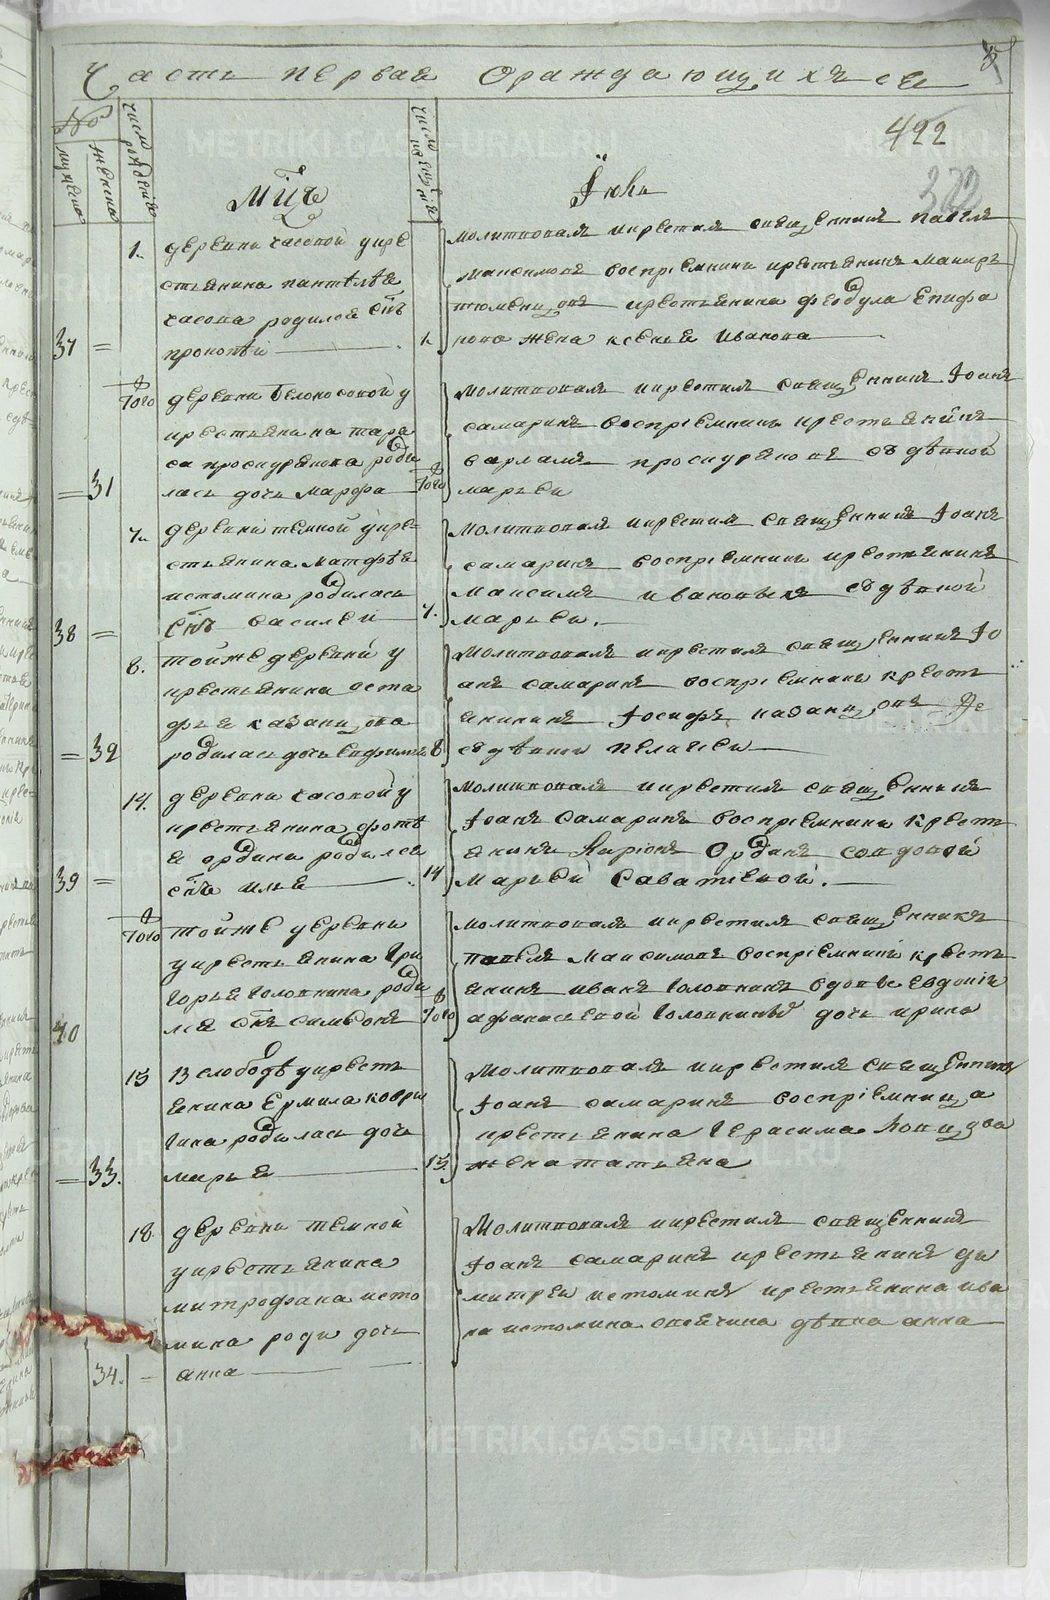 Часть первая О раждающихся
422
322
№
мужеска
женска
число рождения
Мцъ
Июль
37 =
1.
деревни часовой у кре
стьянина пантелѣя
часова родился снъ
прокопѣй
1.
молитвовалъ и крестилъ священникъ павелъ
Максимовъ воспріемники крестьянинъ
крестьянина феодула Епифа
нова жена ксения Иванова
= 31
Того
деревни Белоносовой у
крестьянина тара
са проскурякова роди
лась дочь марфа
Того
молитвовалъ и крестилъ священникъ Іоанъ
самаринъ воспріемникъ крестьянинъ
варламъ проскуряковъ съ дѣвкой
марьей
38 =
7.
деревни темной у кре
стьянина матфѣя
истомина родилась
снъ василей
7.
молитвовалъ и крестилъ священникъ Іоанъ
самаринъ воспріемникъ крестьянинъ
Максимъ съ дѣвкой
марьей.
= 32
8.
тойже деревни у
крестьянина оста
фья казанцова
родилась дочь евфимия
8
молитвовалъ и крестилъ священникъ Іо
анъ самаринъ воспріемникъ крест
янинъ Іосифъ казанцовъ
съ дѣвкой пелагеей
39 =
14.
деревни часовой у
крестьянина фотѣ
я ордина родился
снъ илья
14
молитвовалъ и крестилъ священникъ
Іоанъ Самаринъ воспріемники крест
янинъ Ларіонъ Ординъ со вдовой
марьей Саватѣевой.
40
Того
тойже деревни
у крестьянина Гри
горья Головнина роди
лся снъ симеонъ
Того
молитвовалъ и крестилъ священникъ
павелъ Максимовъ воспріемники крест
янинъ иванъ Головнинъ вдовы Евдокіи
афанасьевой Головниной дочь ирина
= 33.
15
в слободѣ у крест
янина Ермила коври
гина родилась дочь
марья
15
молитвовалъ и крестилъ священникъ
Іоанъ самаринъ воспріемница
крестьянина Герасима
жена татьяна
34. =
18
деревни темной
у крестьянина
митрофана исто
мина роди дочь
анна
молитвовалъ и крестилъ священникъ
Іоанъ самаринъ крестьянинъ ди
митрей истоминъ крестьянина ива
на истомина дѣвка анна